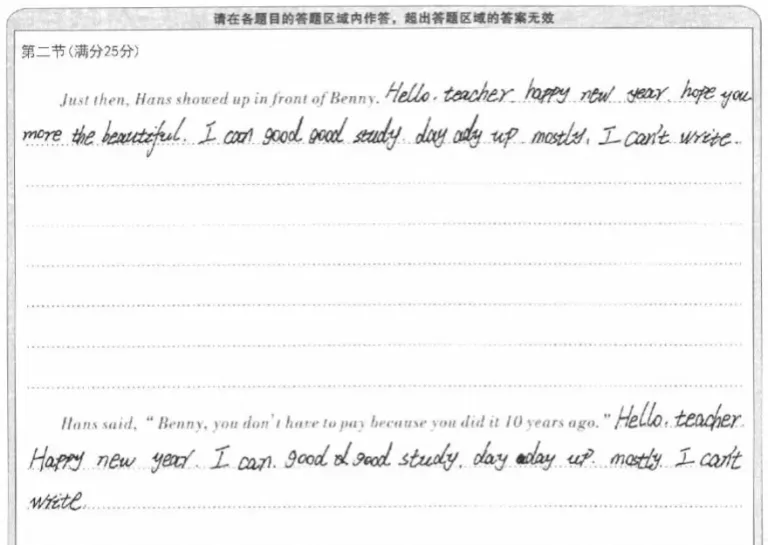 请在各题目的答题区域内作答，超出答题区域的答案无效
第二节(满分25分)
Just then, Hans showed up in front of Benny. Hello. teacher happy new year. hope you
more the beautiful. I can good good study. day ady up mostly. I can't write.
Hans said, “Benny, you don't have to pay because you did it 10 years ago.” Hello. teacher.
Happy new year. I can. good good study. day day up. mostly I can't
write.